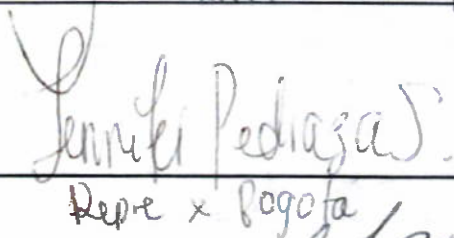 Jennifer Pedraza S.
Repre x Bogota